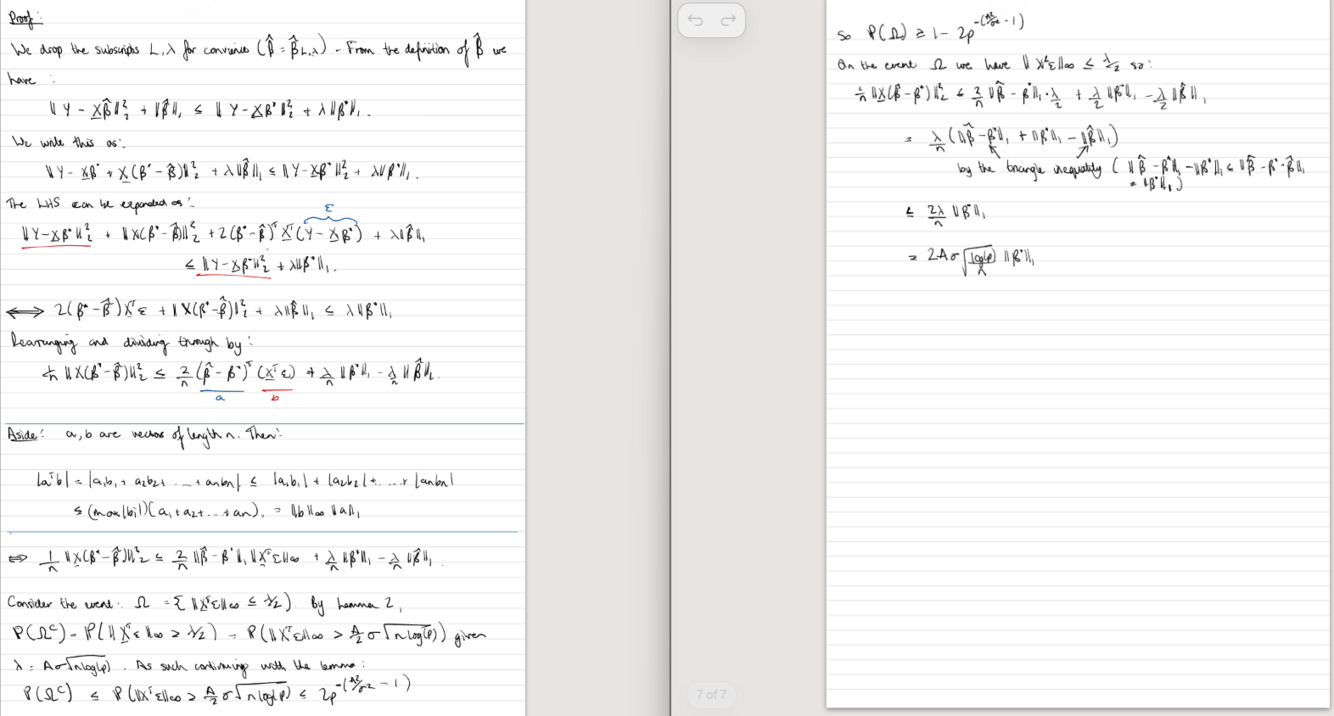 Proof:
We drop the subscripts L, λ for convenience (β̂ = β̂_{L,λ}). From the definition of β̂ we
have:
‖Y - Xβ̂‖²₂ + ‖β̂‖₁ ≤ ‖Y - Xβ*‖²₂ + λ‖β*‖₁.
We write this as:
‖Y - Xβ* + X(β* - β̂)‖²₂ + λ‖β̂‖₁ ≤ ‖Y - Xβ*‖²₂ + λ‖β*‖₁.
The LHS can be expanded as:
ε
‖Y - Xβ*‖²₂ + ‖X(β* - β̂)‖²₂ + 2(β* - β̂)ᵀXᵀ(Y - Xβ*) + λ‖β̂‖₁
≤ ‖Y - Xβ*‖²₂ + λ‖β*‖₁.
⟺ 2(β* - β̂)Xᵀε + ‖X(β* - β̂)‖²₂ + λ‖β̂‖₁ ≤ λ‖β*‖₁
Rearranging and dividing through by:
1/n ‖X(β* - β̂)‖²₂ ≤ 2/n (β̂ - β*)ᵀ(Xᵀε) + λ/n ‖β*‖₁ - λ/n ‖β̂‖₁.
a b
Aside: a, b are vectors of length n. Then:
|aᵀb| = |a₁b₁ + a₂b₂ + ... + anbn| ≤ |a₁b₁| + |a₂b₂| + ... + |anbn|
≤ (max|bi|)(a₁ + a₂ + ... + an), = ‖b‖∞ ‖a‖₁
⟺ 1/n ‖X(β* - β̂)‖²₂ ≤ 2/n ‖β̂ - β*‖₁ ‖Xᵀε‖∞ + λ/n ‖β*‖₁ - λ/n ‖β̂‖₁.
Consider the event: Ω = {‖Xᵀε‖∞ ≤ λ/2} By Lemma 2,
P(Ωᶜ) = P(‖Xᵀε‖∞ > λ/2) = P(‖Xᵀε‖∞ > A/2 σ√(n log(p))) given
λ = Aσ√(n log(p)). As such continuing with the lemma:
P(Ωᶜ) ≤ P(‖Xᵀε‖∞ > A/2 σ√(n log(p)) ≤ 2p^{-(A²/σ² - 1)}
So P(Ω) ≥ 1 - 2p^{-(A²/σ² - 1)}
On the event Ω we have ‖Xᵀε‖∞ ≤ λ/2 so:
1/n ‖X(β̂ - β*)‖²₂ ≤ 2/n ‖β̂ - β*‖₁ · λ/2 + λ/2 ‖β*‖₁ - λ/2 ‖β̂‖₁
= λ/n (‖β̂ - β*‖₁ + ‖β*‖₁ - ‖β̂‖₁)
by the triangle inequality (‖β̂ - β*‖₁ - ‖β*‖₁ ≤ ‖β̂ - β* - β̂‖₁
= ‖β*‖₁)
≤ 2λ/n ‖β*‖₁
= 2Aσ√(log(p)/n) ‖β*‖₁
7 of 7